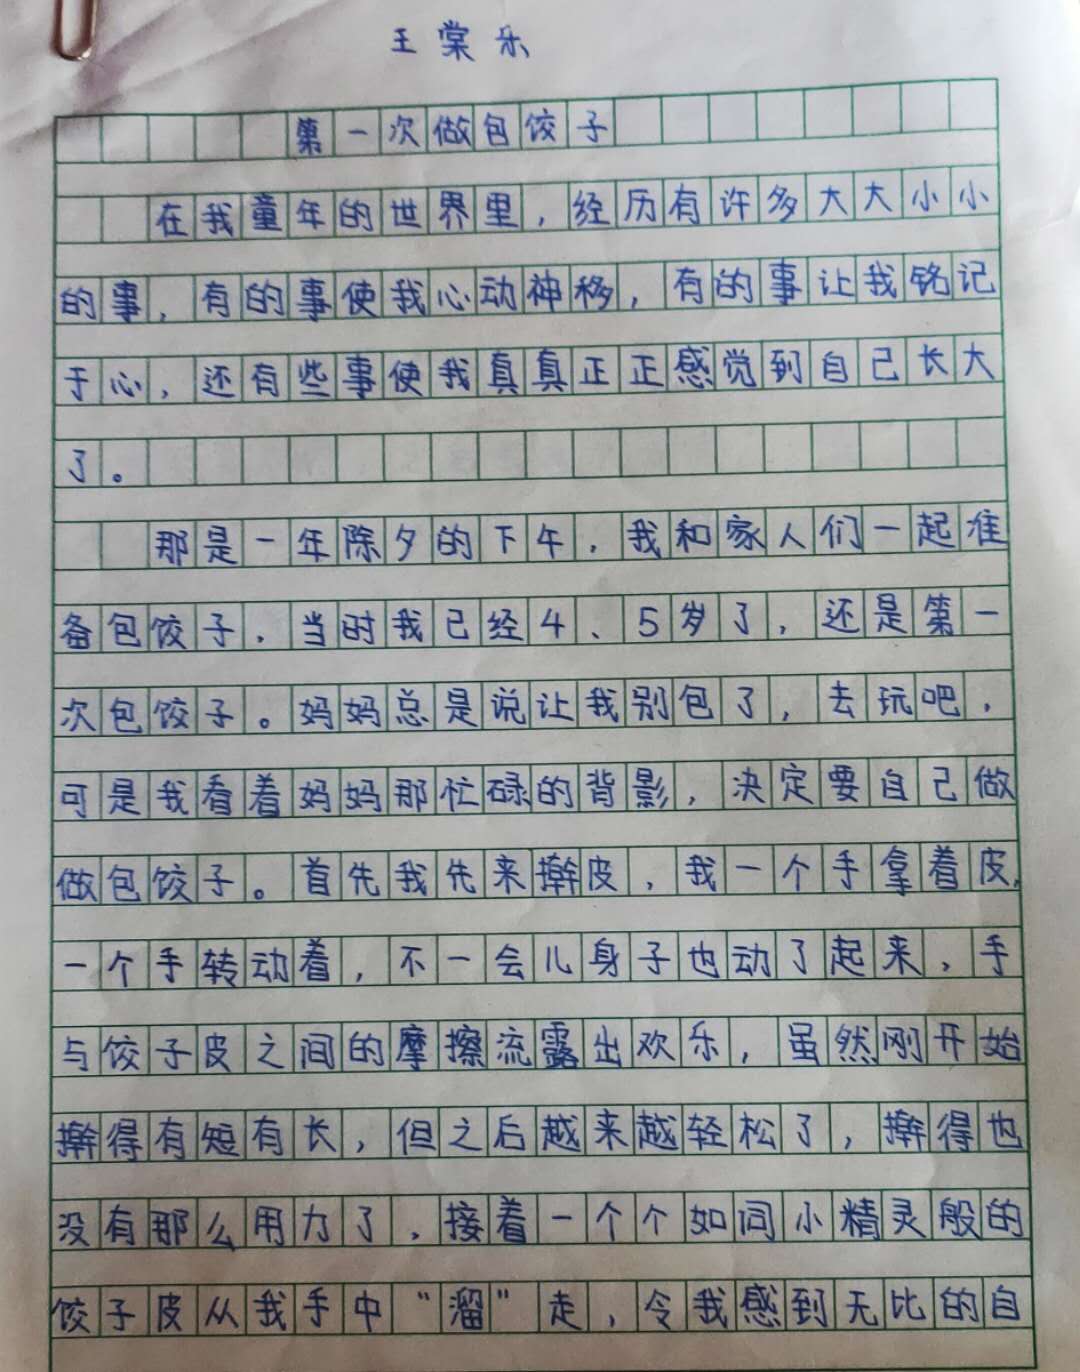 王棠乐
第一次做包饺子
在我童年的世界里，经历有许多大大小小
的事，有的事使我心动神移，有的事让我铭记
于心，还有些事使我真真正正感觉到自己长大
了。
那是一年除夕的下午，我和家人们一起准
备包饺子，当时我已经4、5岁了，还是第一
次包饺子。妈妈总是说让我别包了，去玩吧，
可是我看着妈妈那忙碌的背影，决定要自己做
做包饺子。首先我先来擀皮，我一个手拿着皮，
一个手转动着，不一会儿身子也动了起来，手
与饺子皮之间的摩擦流露出欢乐，虽然刚开始
擀得有短有长，但之后越来越轻松了，擀得也
没有那么用力了，接着一个个如同小精灵般的
饺子皮从我手中“溜”走，令我感到无比的自